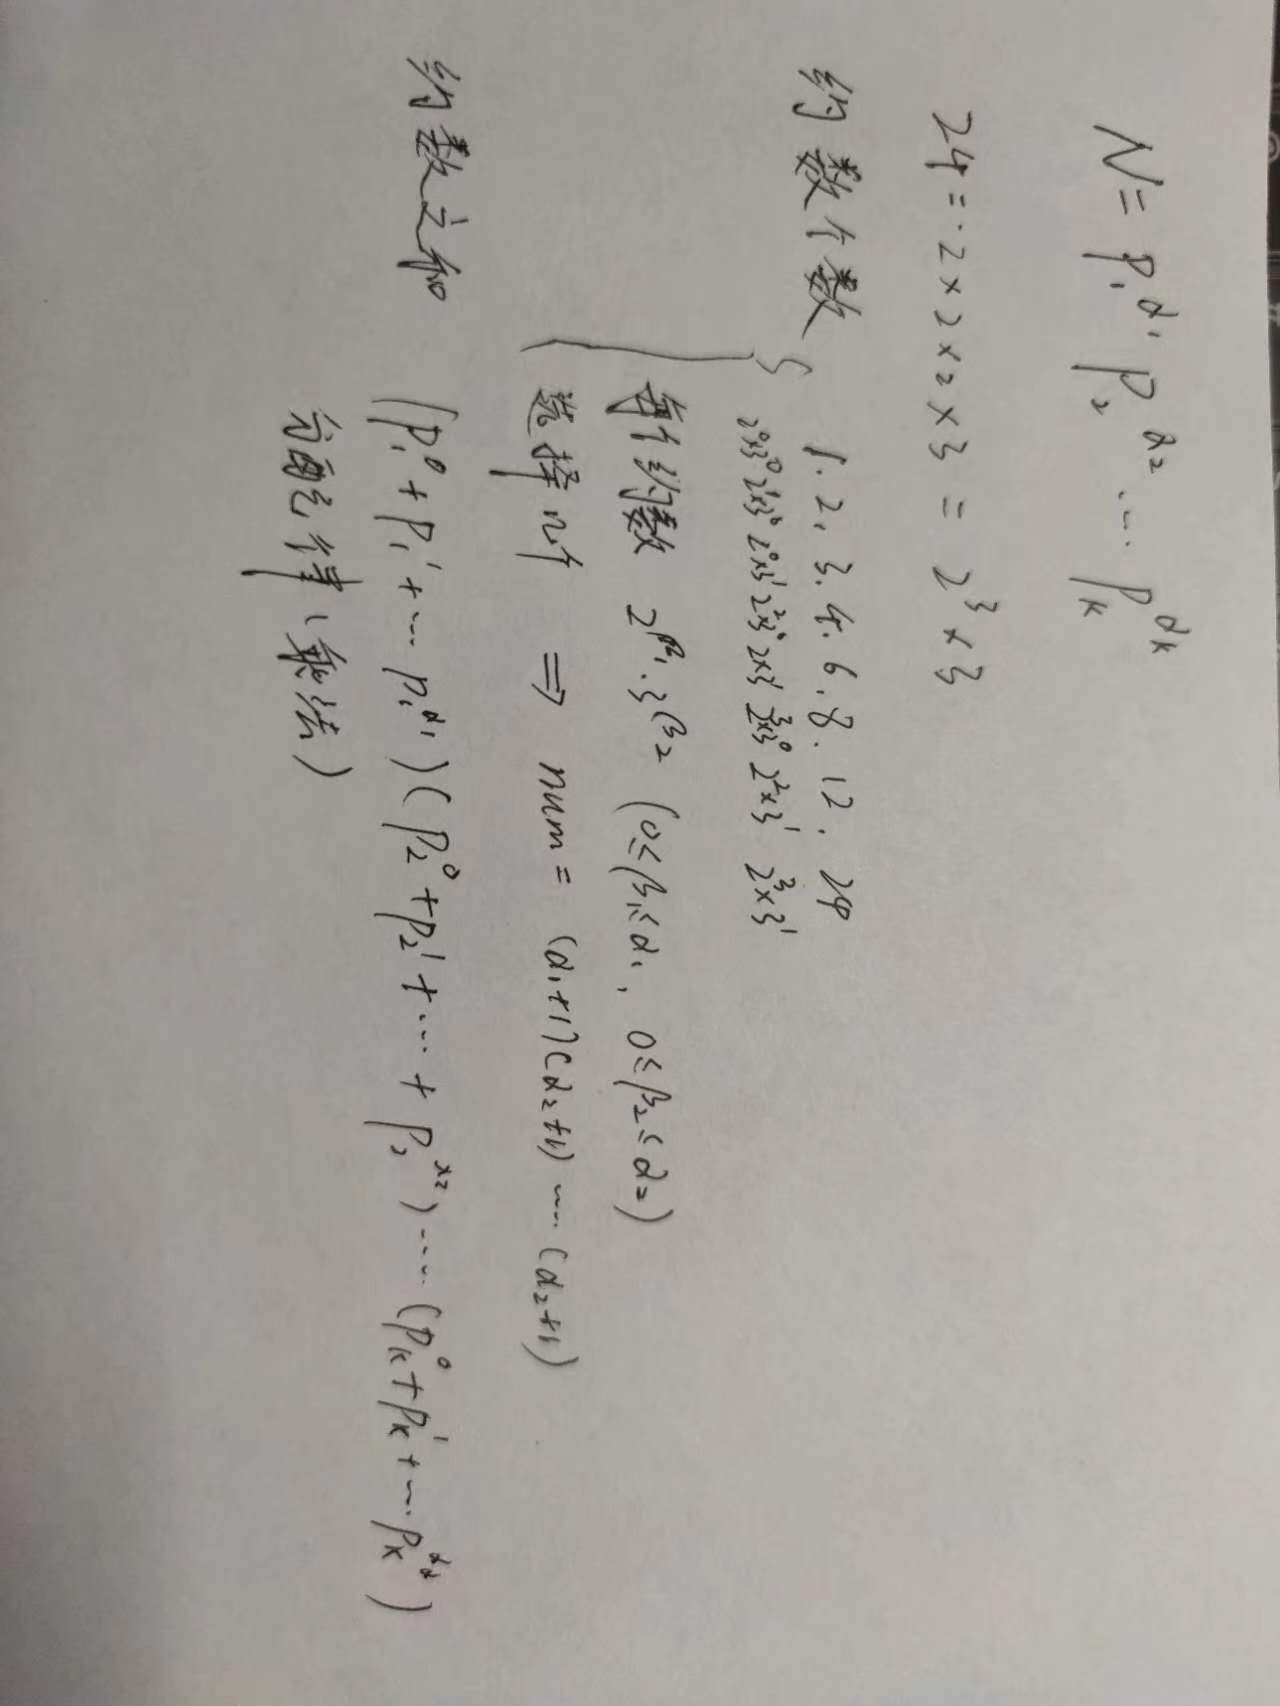 N = P₁^α₁ P₂^α₂ ... Pₖ^αₖ
24 = 2×2×2×3 = 2³×3
约数个数 { 1. 2. 3. 4. 6. 8. 12. 24
2⁰×3⁰ 2¹×3⁰ 2⁰×3¹ 2²×3⁰ 2×3¹ 2³×3⁰ 2²×3¹ 2³×3¹
每个约数 2^β₁·3^β₂ (0≤β₁≤α₁, 0≤β₂≤α₂)
选择 n个 ⇒ num = (α₁+1)(α₂+1)....(α₂+1)
约数之和 (P₁⁰+P₁¹+...P₁^α₁)(P₂⁰+P₂¹+...+P₂^α₂)....(Pₖ⁰+Pₖ¹+...Pₖ^αₖ)
分配律(乘法)